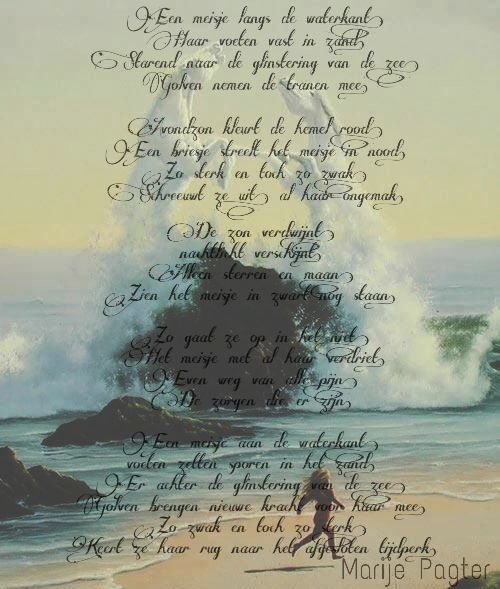 Een meisje langs de waterkant
Haar voeten vast in zand
Starend naar de glinstering van de zee
Golven nemen de tranen mee
Avondzon kleurt de hemel rood
Een briesje streelt het meisje in nood
Zo sterk en toch zo zwak
Schreeuwt ze uit al haar ongemak
De zon verdwijnt
nachtlicht verschijnt
Alleen sterren en maan
Zien het meisje in zwart nog staan
Zo gaat ze op in het niet
Het meisje met al haar verdriet
Even weg van alle pijn
De zorgen die er zijn
Een meisje aan de waterkant
voeten zetten sporen in het zand
Er achter de glinstering van de zee
Golven brengen nieuwe kracht voor haar mee
Zo zwak en toch zo sterk
Keert ze haar rug naar het afgesloten tijdperk
Marije Pagter